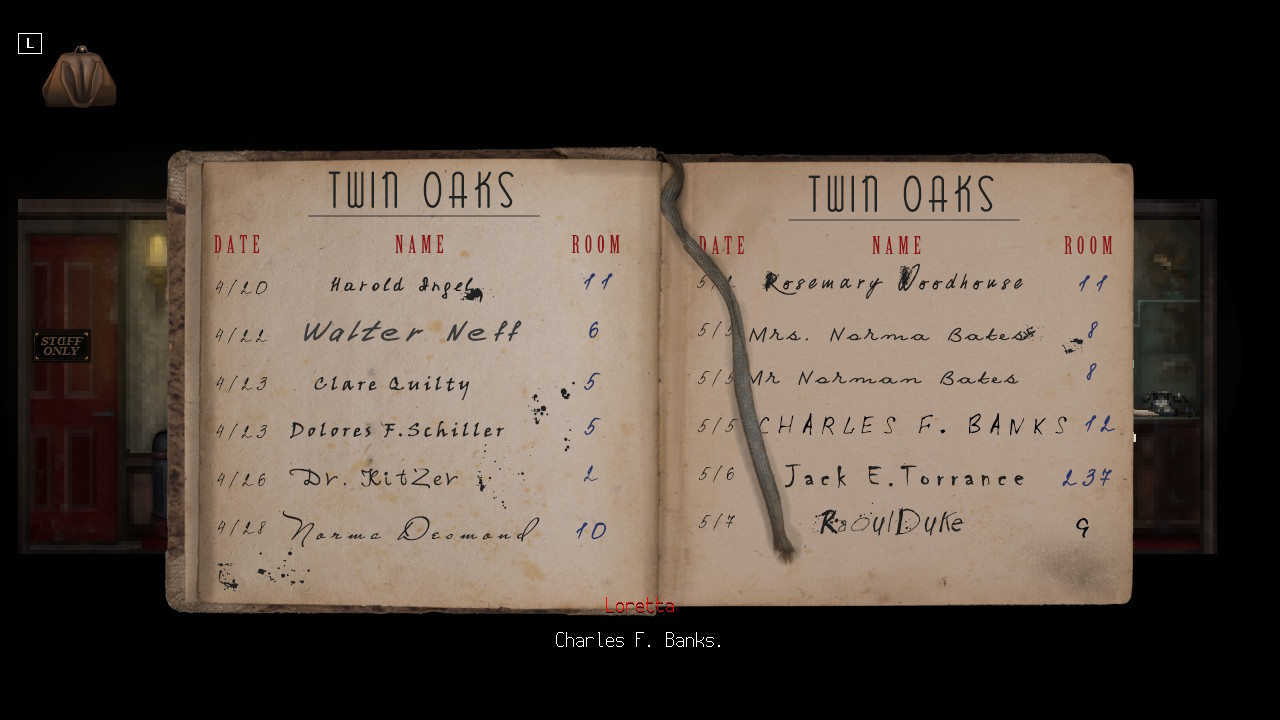 L
TWIN OAKS
DATE NAME ROOM
4/20 Harold Ingel 11
4/22 Walter Neff 6
4/23 Clare Quilty 5
4/23 Dolores F.Schiller 5
4/26 Dr. KitZer 2
4/28 Norma Desmond 10
TWIN OAKS
DATE NAME ROOM
Rosemary Woodhouse 11
5/5 Mrs. Norma Bates 8
5/5 Mr Norman Bates 8
5/5 CHARLES F. BANKS 12
5/6 Jack E.Torrance 237
5/7 Raoul Duke 9
STAFF
ONLY
Loretta
Charles F. Banks.